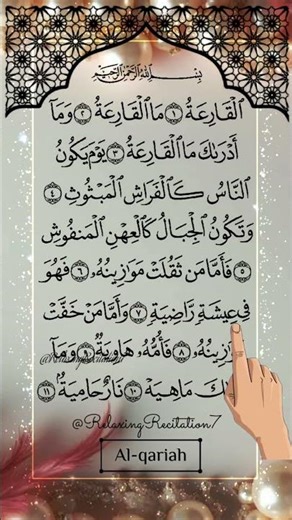 بِسْمِ اللَّهِ الرَّحْمَٰنِ الرَّحِيمِ
الْقَارِعَةُ ١ مَا الْقَارِعَةُ ٢ وَمَا
أَدْرَىٰكَ مَا الْقَارِعَةُ ٣ يَوْمَ يَكُونُ
النَّاسُ كَالْفَرَاشِ الْمَبْثُوثِ ٤
وَتَكُونُ الْجِبَالُ كَالْعِهْنِ الْمَنفُوشِ
٥ فَأَمَّا مَن ثَقُلَتْ مَوَازِينُهُ ٦ فَهُوَ
فِي عِيشَةٍ رَّاضِيَةٍ ٧ وَأَمَّا مَنْ خَفَّتْ
زِينُهُ ٨ فَأُمُّهُ هَاوِيَةٌ ٩ وَمَا
كَ مَا هِيَهْ ١٠ نَارٌ حَامِيَةٌ ١١
@RelaxingRecitation7
Al-qariah